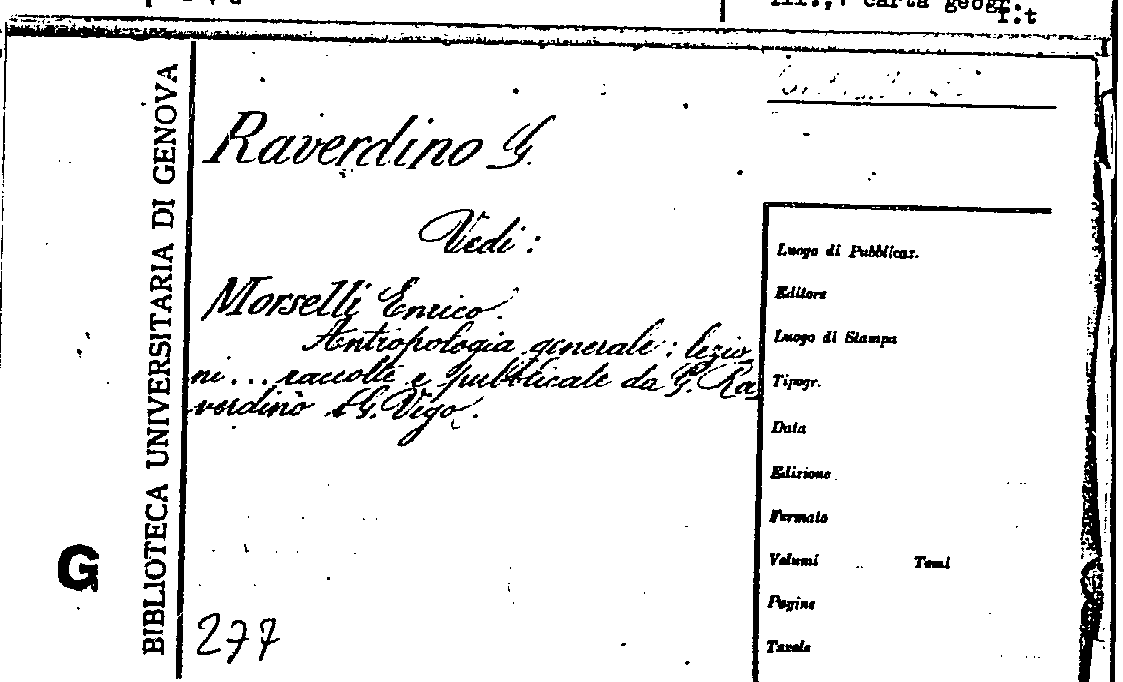 Ill., : carta geogr.
I.t
BIBLIOTECA UNIVERSITARIA DI GENOVA
G
Raverdino G.
Vedi :
Morselli Enrico.
Antropologia generale : lezio_
ni... raccolte e pubblicate da G. Ra_
verdino e G. Vigo.
277
Luogo di Pubblicaz.
Editore
Luogo di Stampa
Tipogr.
Data
Edizione
Formato
Volumi Tomi
Pagine
Tavole